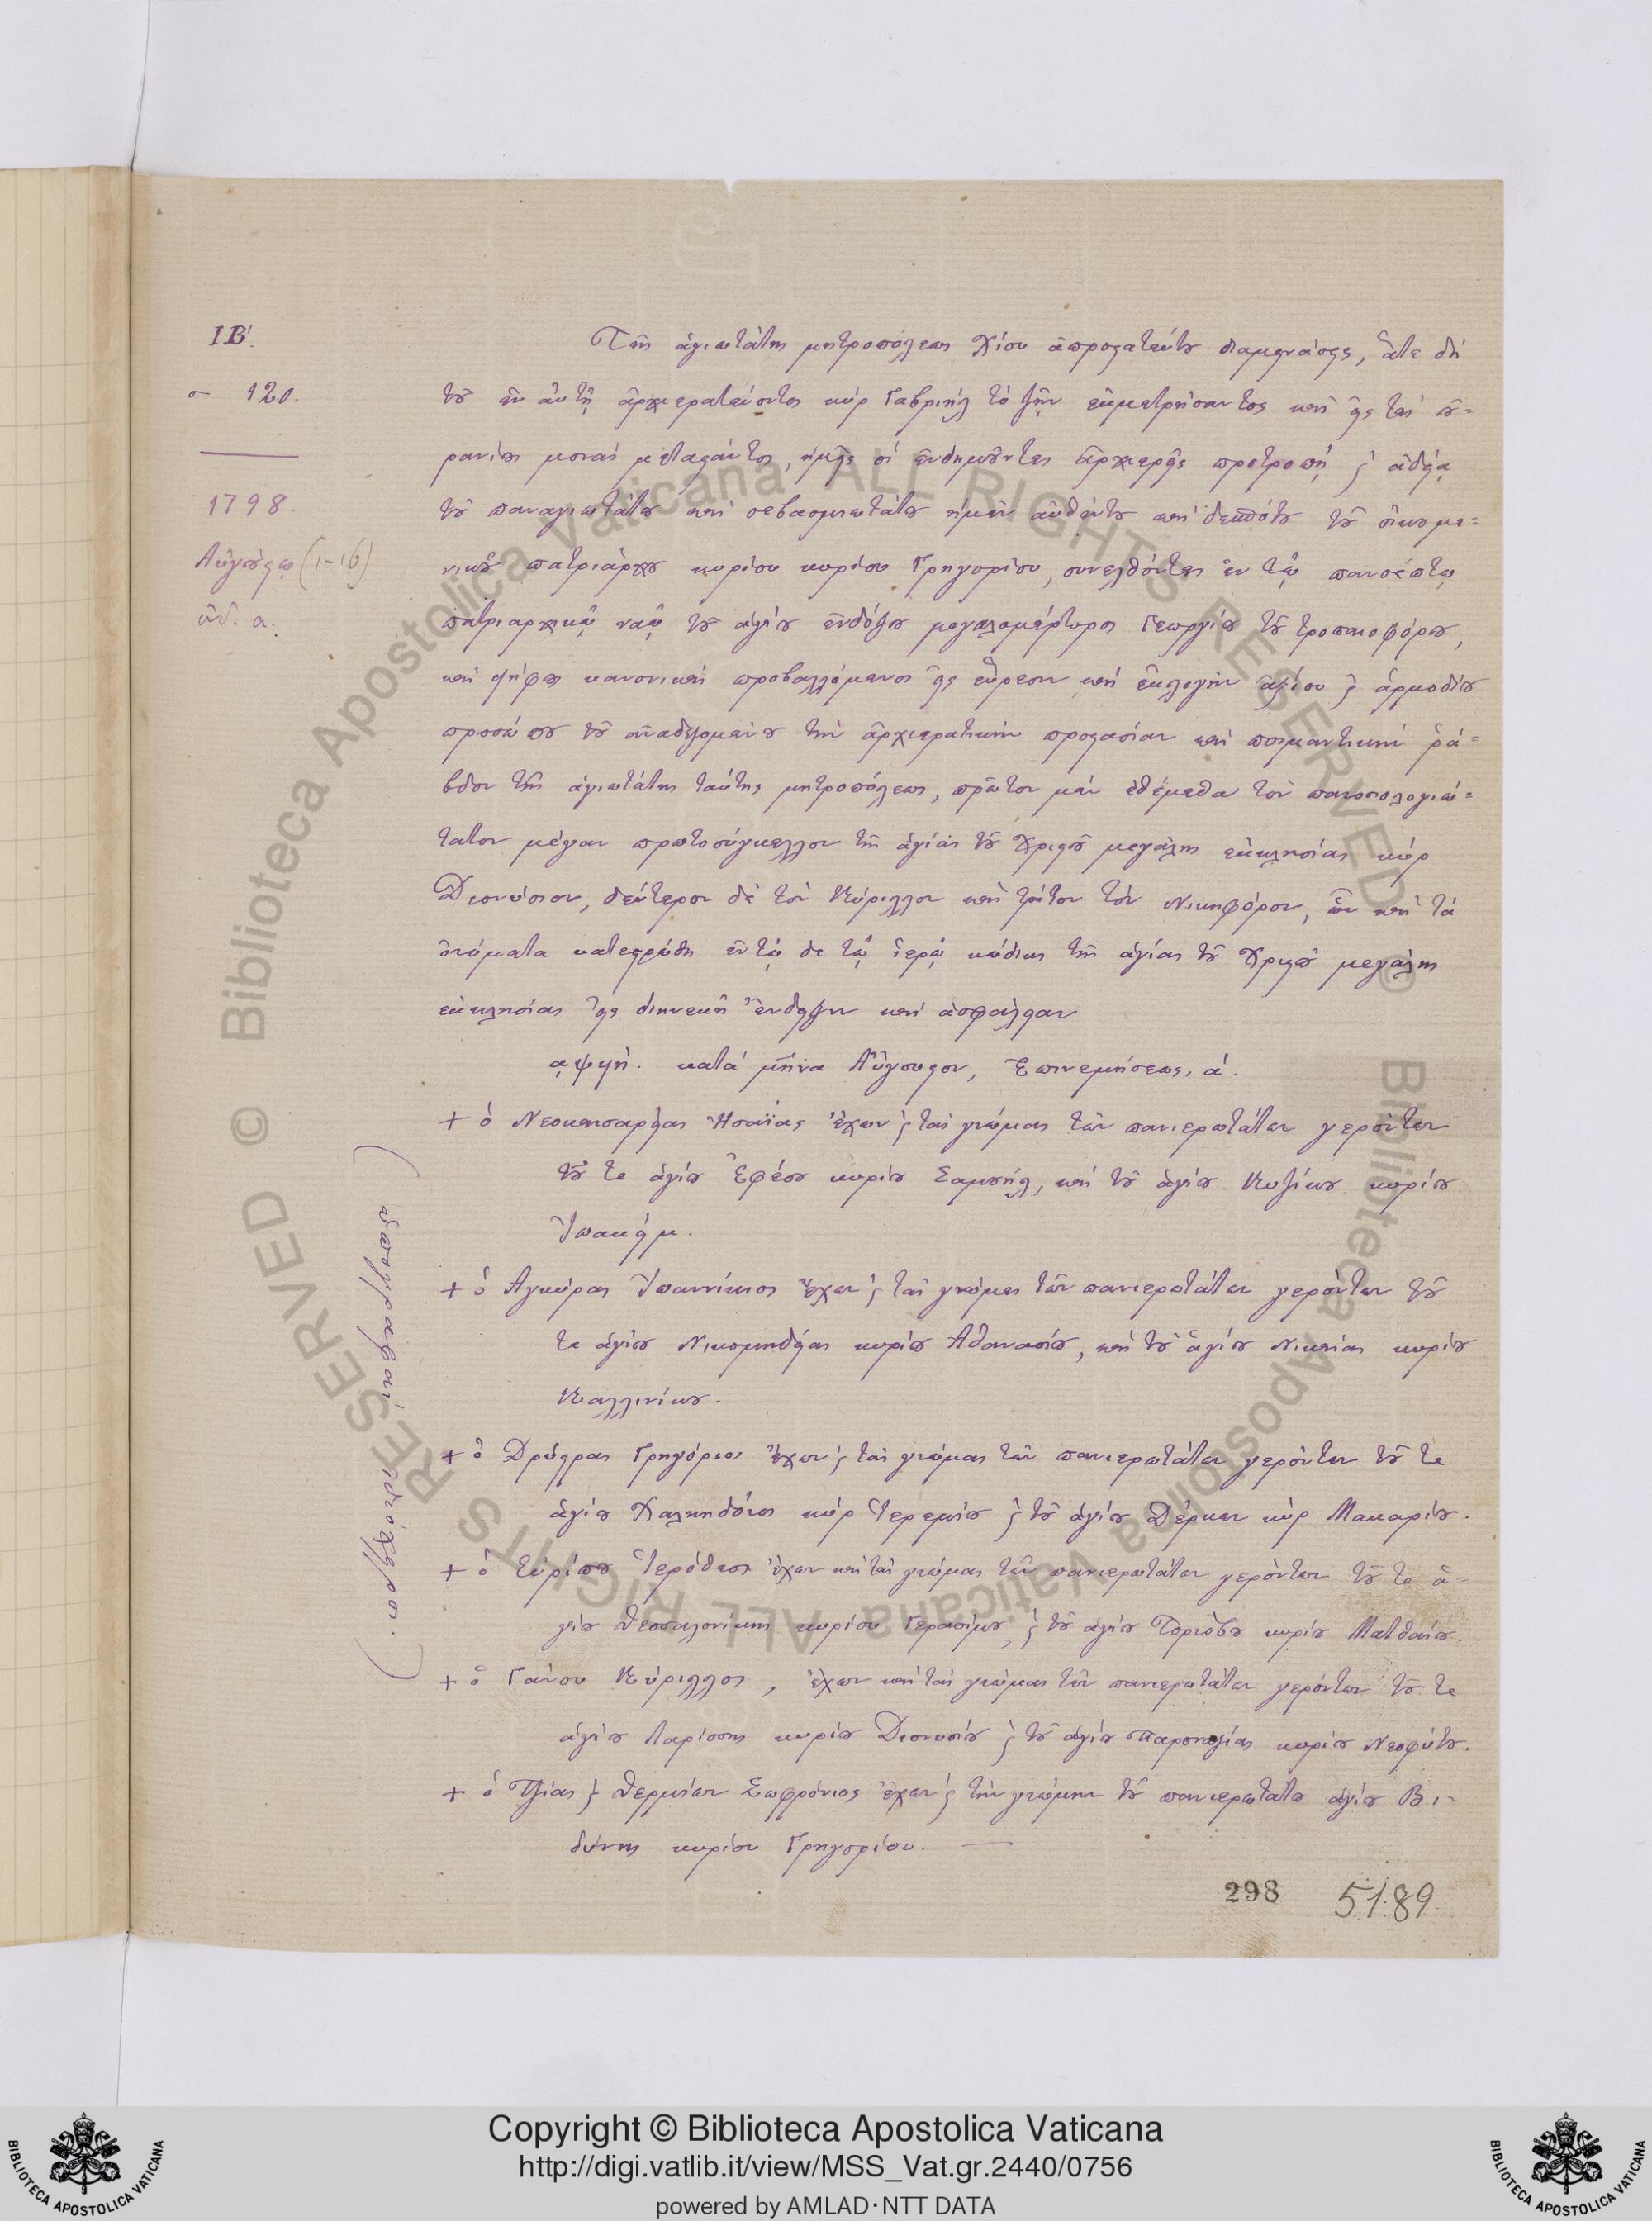 ΙΒ΄.
σ 120.
1798.
Αὐγούστῳ (1-16)
ἰνδ. α.
Τῆς ἁγιωτάτης μητροπόλεως Χίου ἀπροστατεύτου διαμεινάσης, ἅτε δὴ
τοῦ ἐν αὐτῇ ἀρχιερατεύοντος κὺρ Γαβριὴλ τὸ ζῆν ἐκμετρήσαντος καὶ εἰς τὰς οὐ-
ρανίους μονὰς μεταστάντος, ἡμεῖς οἱ ἐνδημοῦντες ἀρχιερεῖς προτροπῇ καὶ ἀδείᾳ
τοῦ παναγιωτάτου καὶ σεβασμιωτάτου ἡμῶν αὐθέντου καὶ δεσπότου τοῦ οἰκουμε-
νικοῦ πατριάρχου κυρίου κυρίου Γρηγορίου, συνελθόντες ἐν τῷ πανσέπτῳ
πατριαρχικῷ ναῷ τοῦ ἁγίου ἐνδόξου μεγαλομάρτυρος Γεωργίου τοῦ τροπαιοφόρου,
καὶ ψήφους κανονικὰς προβαλλόμενοι εἰς εὕρεσιν καὶ ἐκλογὴν ἀξίου καὶ ἁρμοδίου
προσώπου τοῦ ἀναδεξομένου τὴν ἀρχιερατικὴν προστασίαν καὶ ποιμαντικὴν ῥά-
βδον τῆς ἁγιωτάτης ταύτης μητροπόλεως, πρῶτον μὲν ἐθέμεθα τὸν πανοσιολογιώ-
τατον μέγαν πρωτοσύγκελλον τῆς ἁγίας τοῦ Χριστοῦ μεγάλης ἐκκλησίας κὺρ
Διονύσιον, δεύτερον δὲ τὸν Κύριλλον καὶ τρίτον τὸν Νικηφόρον, ὧν καὶ τὰ
ὀνόματα κατεστρώθη ἐν τῷδε τῷ ἱερῷ κώδικι τῆς ἁγίας τοῦ Χριστοῦ μεγάλης
ἐκκλησίας εἰς διηνεκῆ ἔνδειξιν καὶ ἀσφάλειαν
͵αψϟη΄. κατὰ μῆνα Αὔγουστον, Ἐπινεμήσεως, α΄.
+ ὁ Νεοκαισαρείας Ἡσαΐας ἔχων καὶ τὰς γνώμας τῶν πανιερωτάτων γερόντων
τοῦ τε ἁγίου Ἐφέσου κυρίου Σαμουήλ, καὶ τοῦ ἁγίου Κυζίκου κυρίου
Ἰωακείμ.
+ ὁ Ἀγκύρας Ἰωαννίκιος ἔχων καὶ τὰς γνώμας τῶν πανιερωτάτων γερόντων τοῦ
τε ἁγίου Νικομηδείας κυρίου Ἀθανασίου, καὶ τοῦ ἁγίου Νικαίας κυρίου
Καλλινίκου.
+ ὁ Δρύστρας Γρηγόριος ἔχων καὶ τὰς γνώμας τῶν πανιερωτάτων γερόντων τοῦ τε
ἁγίου Χαλκηδόνος κὺρ Ἱερεμίου καὶ τοῦ ἁγίου Δέρκων κὺρ Μακαρίου.
+ ὁ Εὐρίπου Ἱερόθεος ἔχων καὶ τὰς γνώμας τῶν πανιερωτάτων γερόντων τοῦ τε ἁ-
γίου Θεσσαλονίκης κυρίου Γερασίμου, καὶ τοῦ ἁγίου Τορνόβου κυρίου Ματθαίου.
+ ὁ Γάνου Κύριλλος, ἔχων καὶ τὰς γνώμας τῶν πανιερωτάτων γερόντων τοῦ τε
ἁγίου Λαρίσσης κυρίου Διονυσίου καὶ τοῦ ἁγίου Παροναξίας κυρίου Νεοφύτου.
+ ὁ Τζίας καὶ Θερμίων Σωφρόνιος ἔχων καὶ τὴν γνώμην τοῦ πανιερωτάτου ἁγίου Βι-
δύνης κυρίου Γρηγορίου. —
(ὑπογραφαὶ ἰδιόχειροι.)
298 5189
Copyright © Biblioteca Apostolica Vaticana
http://digi.vatlib.it/view/MSS_Vat.gr.2440/0756
powered by AMLAD·NTT DATA
BIBLIOTECA APOSTOLICA VATICANA
BIBLIOTECA APOSTOLICA VATICANA
© Biblioteca Apostolica Vaticana ALL RIGHTS RESERVED
© Biblioteca Apostolica Vaticana ALL RIGHTS RESERVED